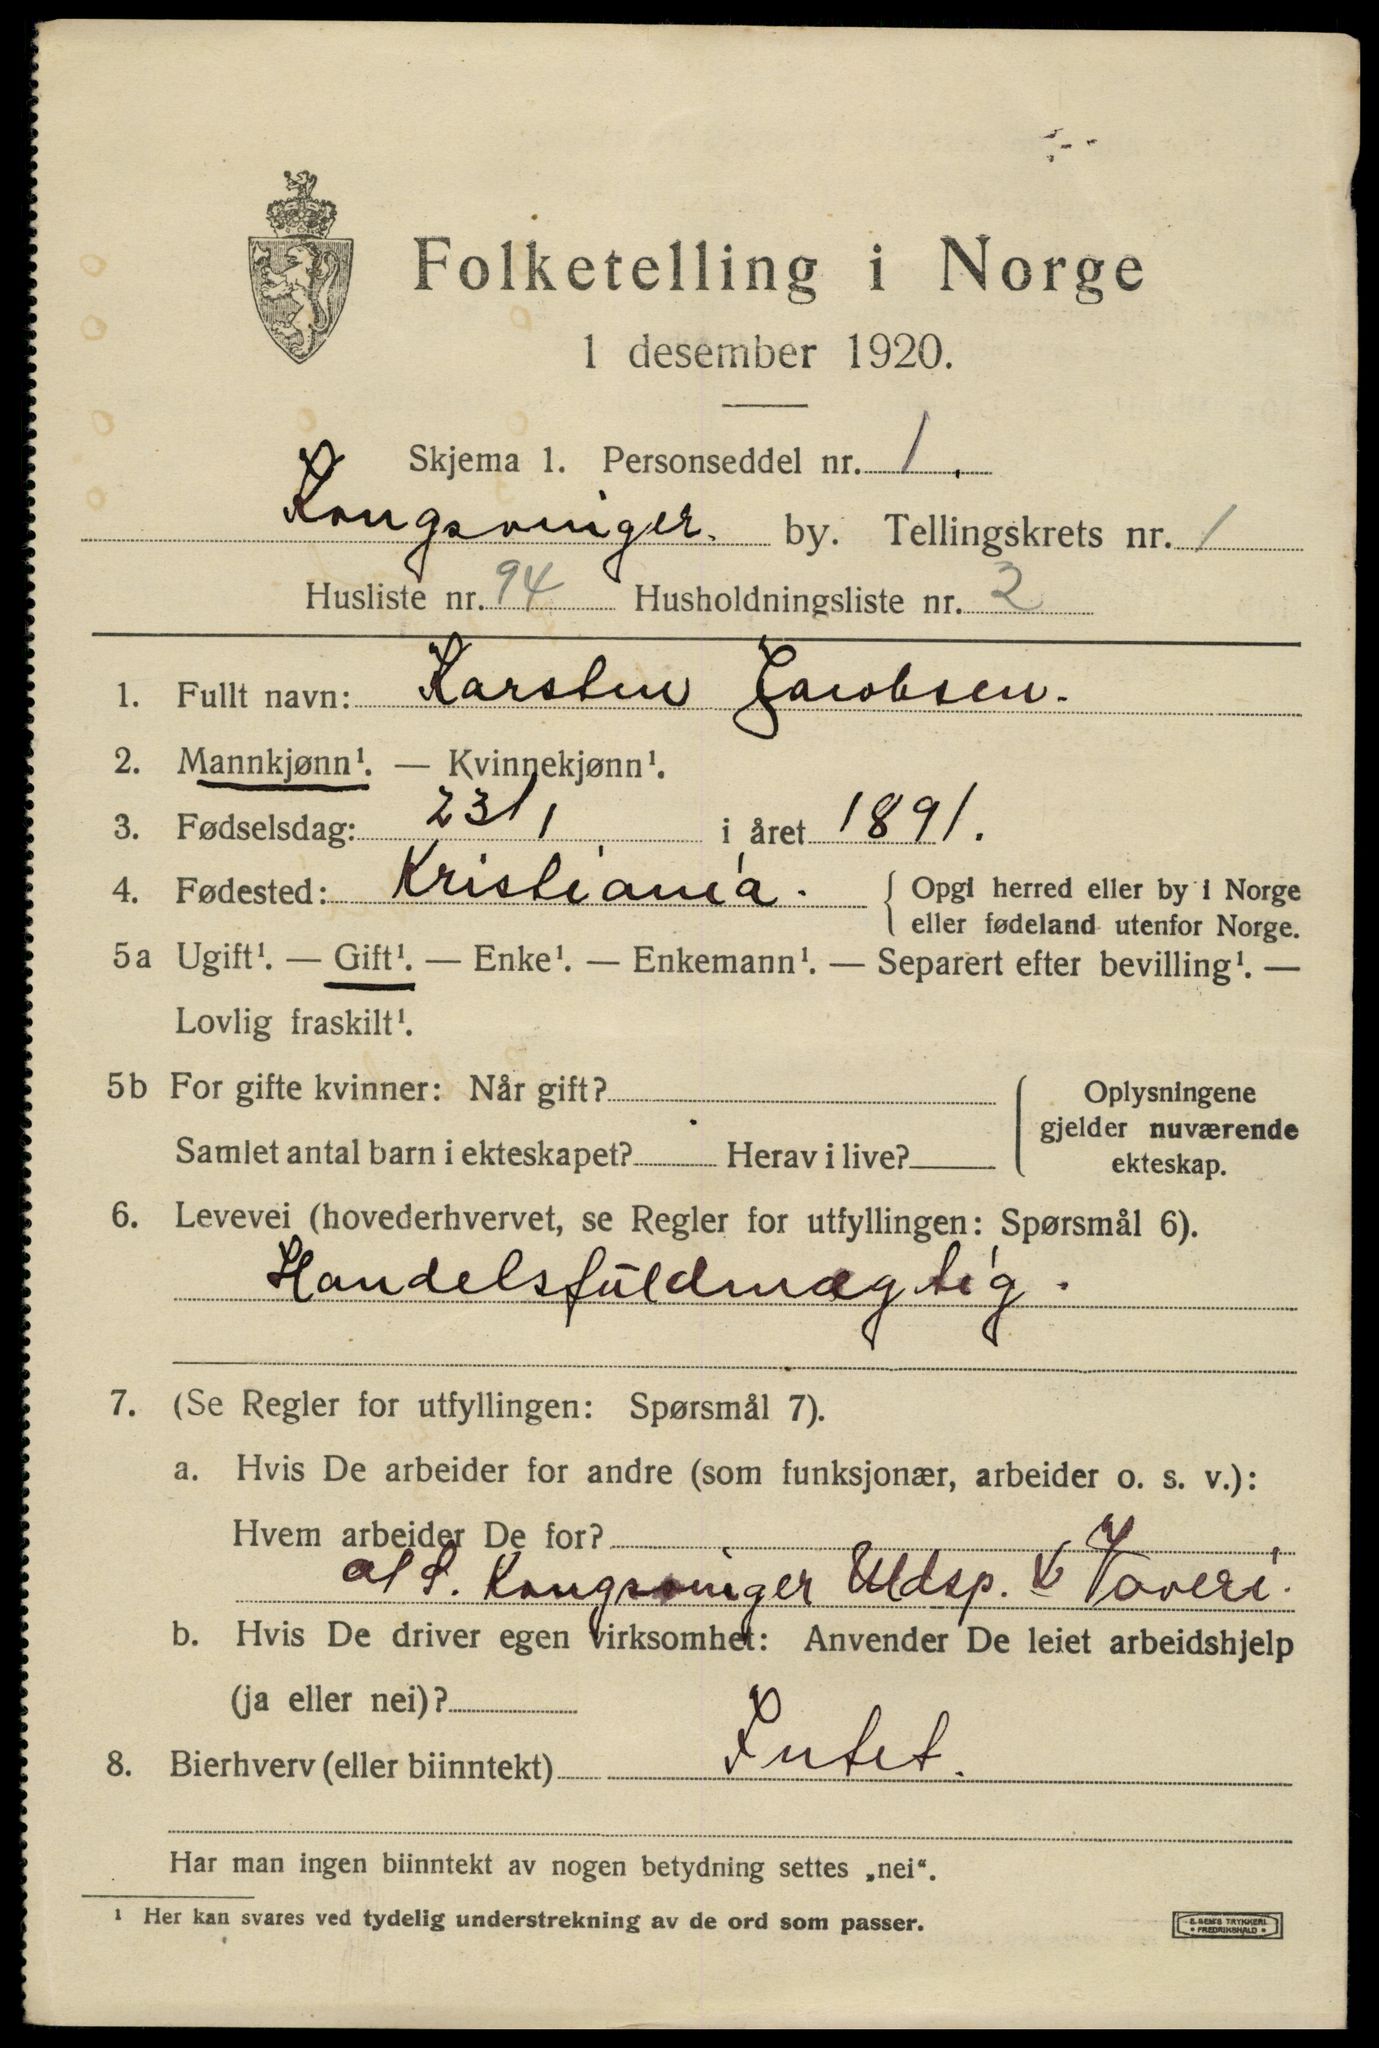 Folketelling i Norge
1 desember 1920.
Skjema 1. Personseddel nr. 1.
Kongsvinger. by. Tellingskrets nr. 1
Husliste nr. 94 Husholdningsliste nr. 2
1. Fullt navn: Karsten Jacobsen.
2. Mannkjønn¹. — Kvinnekjønn¹.
3. Fødselsdag: 23/1 i året 1891.
4. Fødested: Kristiania. { Opgi herred eller by i Norge
eller fødeland utenfor Norge.
5a Ugift¹. — Gift¹. — Enke¹. — Enkemann¹. — Separert efter bevilling¹. —
Lovlig fraskilt¹.
5b For gifte kvinner: Når gift? { Oplysningene
gjelder nuværende
Samlet antal barn i ekteskapet? Herav i live? ekteskap.
6. Levevei (hovederhvervet, se Regler for utfyllingen: Spørsmål 6).
Handelsfuldmægtig.
7. (Se Regler for utfyllingen: Spørsmål 7).
a. Hvis De arbeider for andre (som funksjonær, arbeider o. s. v.):
Hvem arbeider De for?
a/s. Kongsvinger Uldsp. & Væveri.
b. Hvis De driver egen virksomhet: Anvender De leiet arbeidshjelp
(ja eller nei)?
8. Bierhverv (eller biinntekt) Intet.
Har man ingen biinntekt av nogen betydning settes „nei“.
¹ Her kan svares ved tydelig understrekning av de ord som passer.
E. SEM'S TRYKKERI
• FREDRIKSHALD •